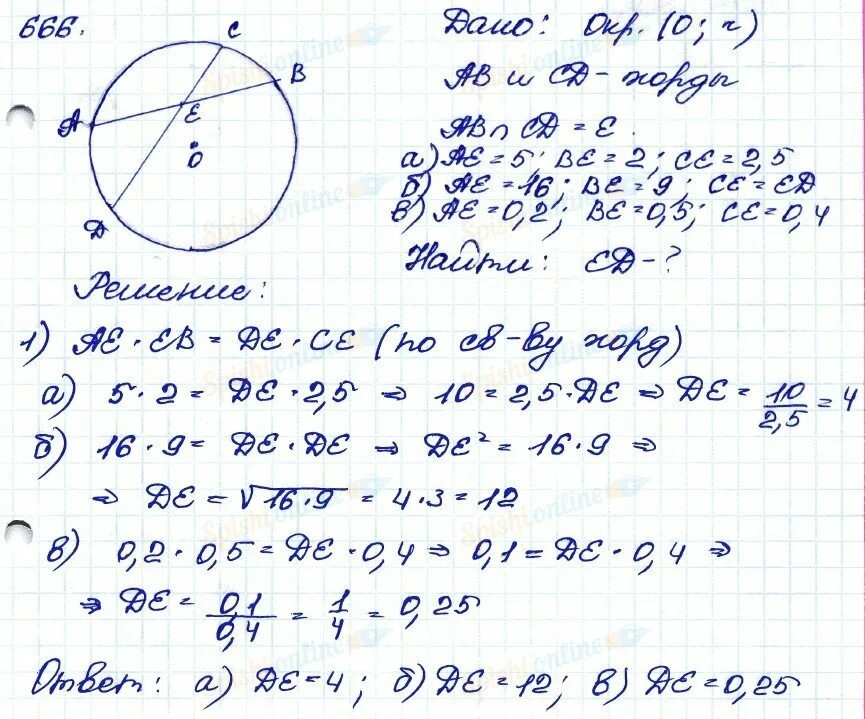 666.
C
B
A
E
O
D
Дано: Окр. (O; r)
AB и CD - хорды
AB ∩ CD = E.
а) AE = 5; BE = 2; CE = 2,5
б) AE = 16; BE = 9; CE = ED
в) AE = 0,2; BE = 0,5; CE = 0,4
Найти: ED - ?
Решение:
1) AE · EB = DE · CE (по св-ву хорд)
а) 5 · 2 = DE · 2,5 ⇒ 10 = 2,5 · DE ⇒ DE = 10/2,5 = 4
б) 16 · 9 = DE · DE ⇒ DE² = 16 · 9 ⇒
⇒ DE = √16·9 = 4·3 = 12
в) 0,2 · 0,5 = DE · 0,4 ⇒ 0,1 = DE · 0,4 ⇒
⇒ DE = 0,1/0,4 = 1/4 = 0,25
Ответ: а) DE = 4; б) DE = 12; в) DE = 0,25